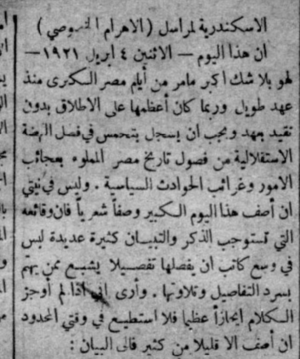 الاسكندرية لمراسل (الاهرام الخصوصي)
ان هذا اليوم — الاثنين ٤ ابريل ١٩٢١ —
لهو بلا شك اكبر مامر من أيام مصر الكبرى منذ
عهد طويل وربما كان أعظمها على الاطلاق بدون
تقيد بعهد ويجب ان يسجل بتحمس في فصل النهضة
الاستقلالية من فصول تاريخ مصر المملوء بعجائب
الامور وغرائب الحوادث السياسية . وليس في نيتي
ان أصف هذا اليوم الكبير وصفاً شعرياً فان وقائعه
التي تستوجب الذكر والتبيان كثيرة عديدة ليس
في وسع كاتب ان يفصلها تفصيلا يشبع نهم
بسرد التفاصيل وتلاوتها . وأرى اني اذا لم أوجز
الكلام إيجازاً عظيما فلا استطيع في وقتي المحدود
ان أصف الا قليلا من كثير فالى البيان :